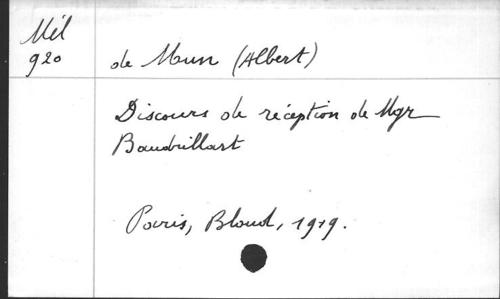 Mél
920
de Mun (Albert)
Discours de réception de Mgr
Baudrillart
Paris, Bloud, 1919.